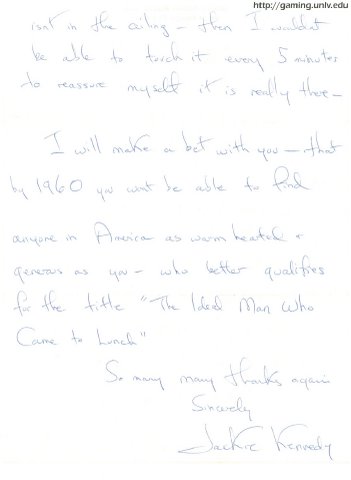 http://gaming.unlv.edu
isnt in the ceiling – then I wouldnt
be able to touch it every 5 minutes
to reassure myself it is really there –
I will make a bet with you – that
by 1960 you wont be able to find
anyone in America as warm hearted &
generous as you – who better qualifies
for the title "The Ideal Man Who
Came to Lunch"
So many many thanks again
Sincerely
Jackie Kennedy